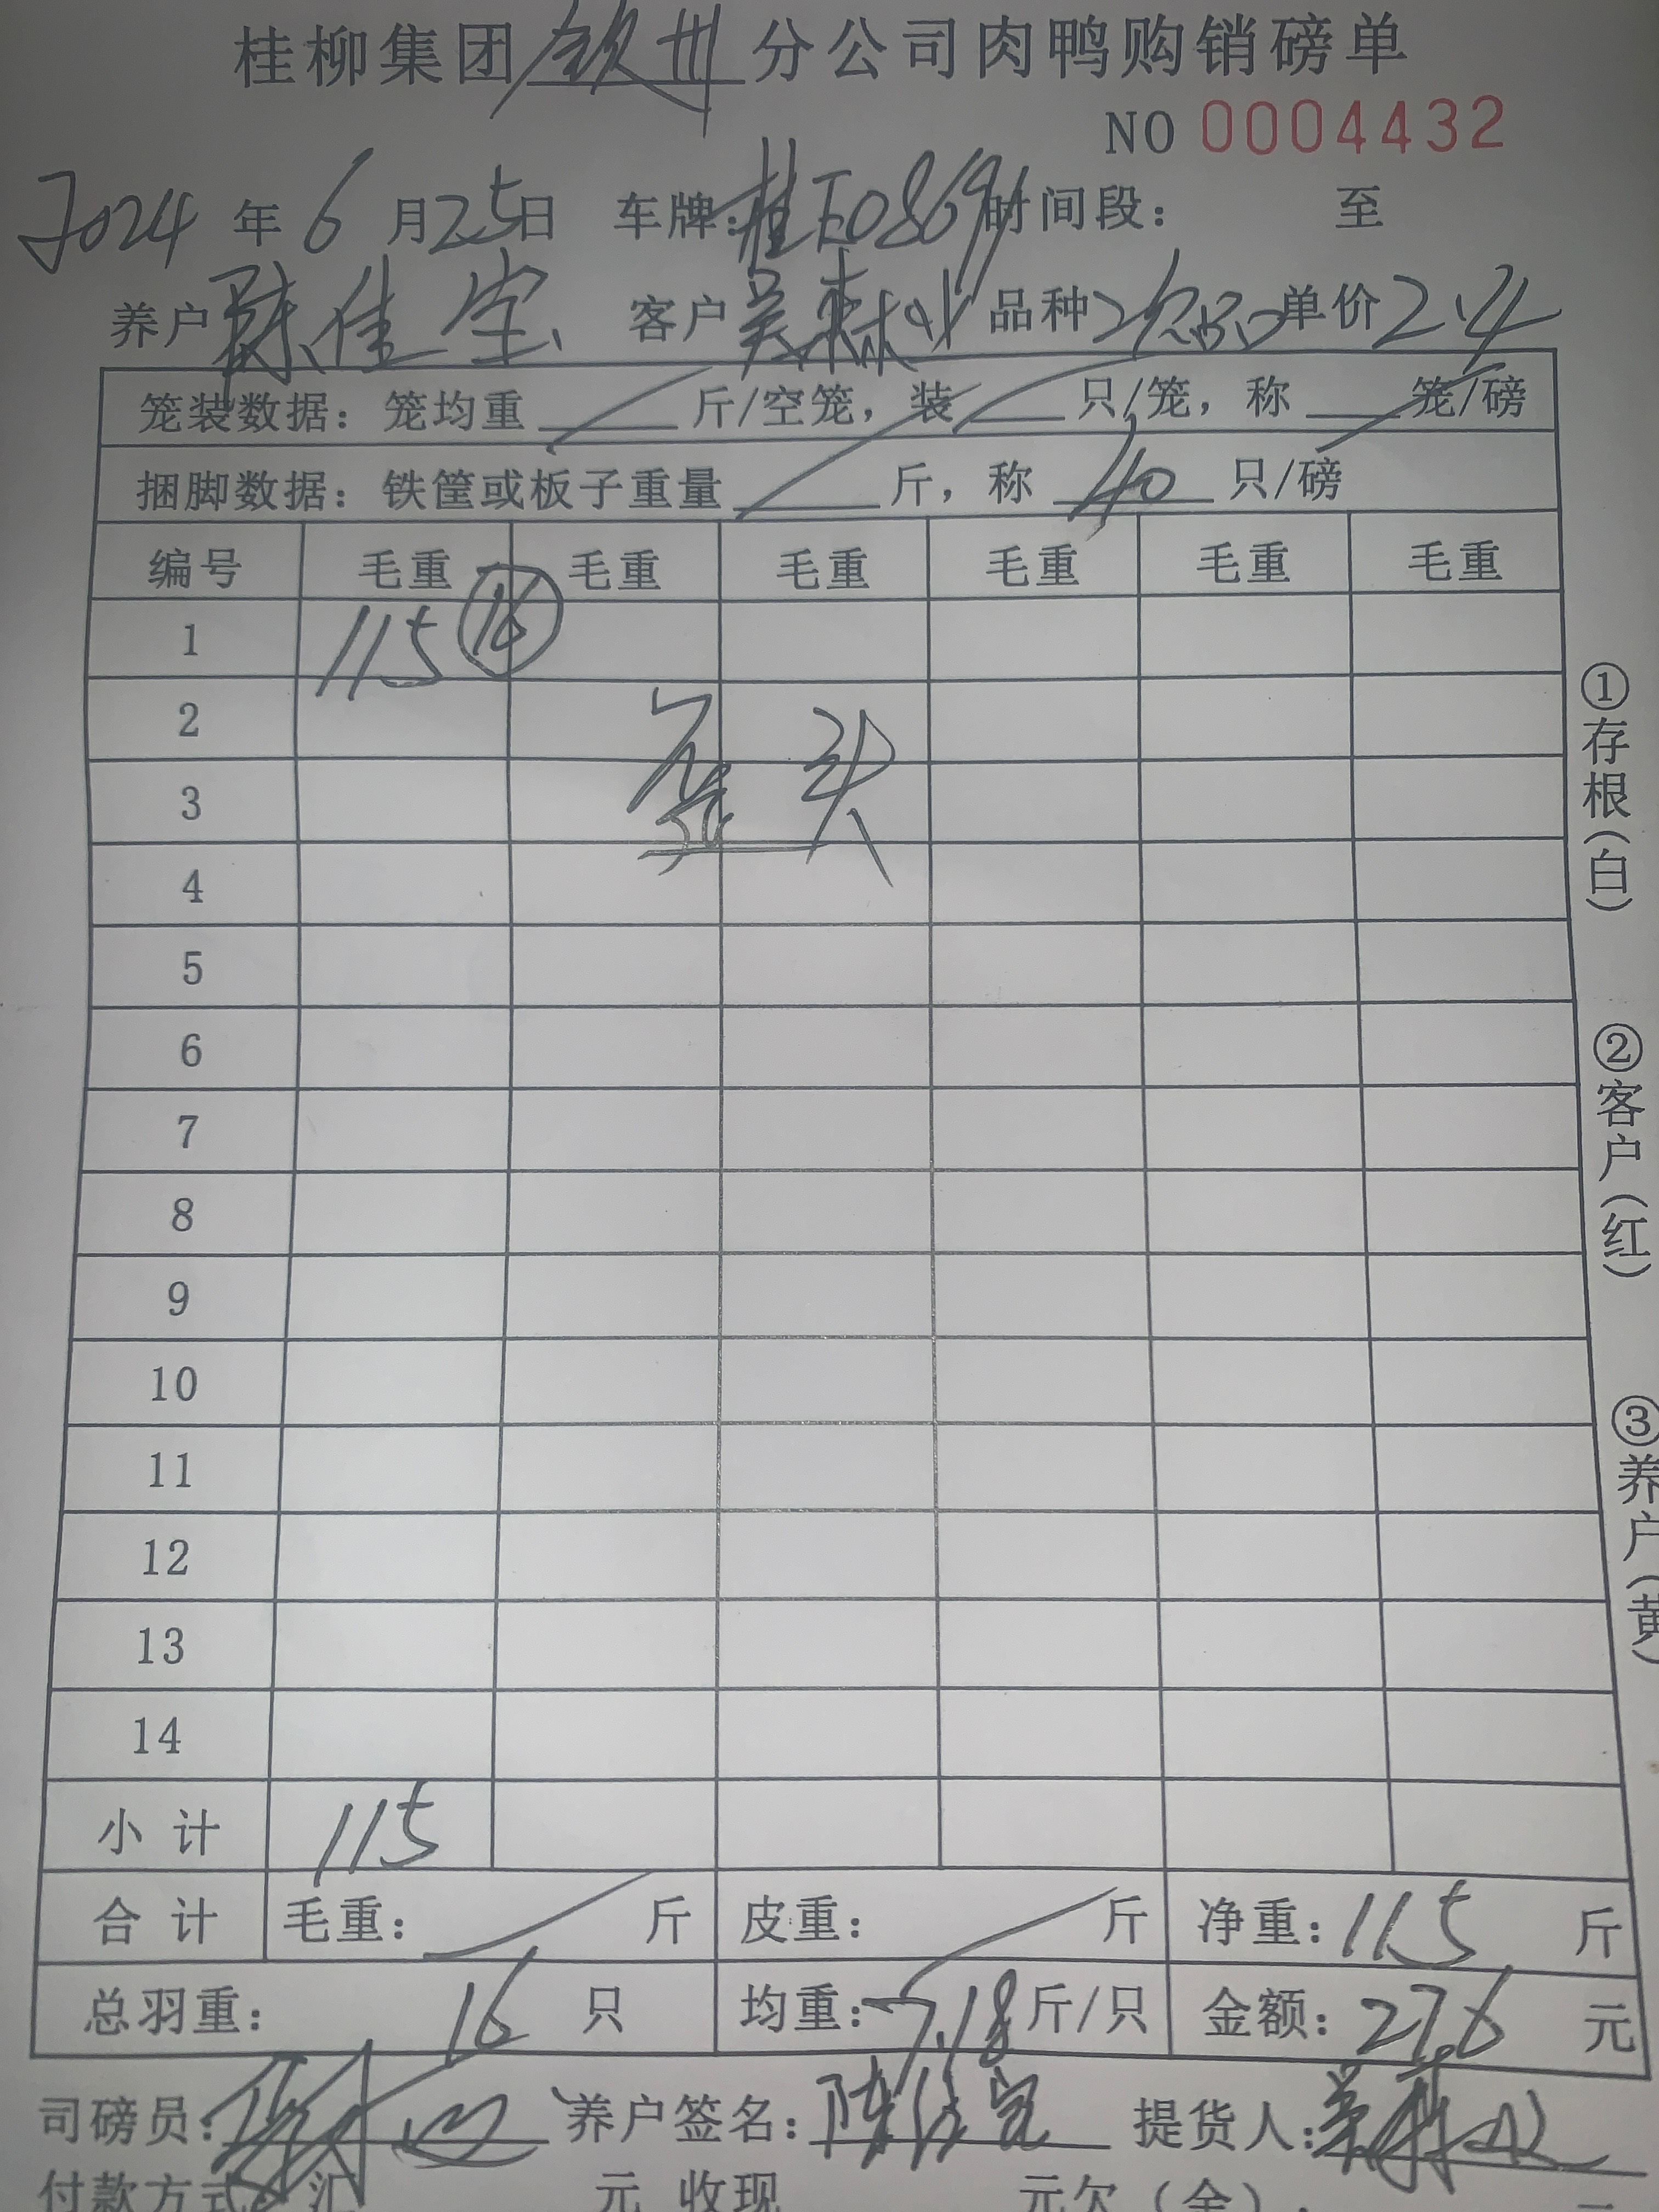 桂柳集团 钦州 分公司肉鸭购销磅单
NO 0004432
2024 年 6 月 25 日 车牌: 桂E08691 时间段: 至
养户 陈佳宝 客户 品种 单价 2.4
笼装数据: 笼均重 斤/空笼, 装 只/笼, 称 笼/磅
捆脚数据: 铁筐或板子重量 斤, 称 40 只/磅
编号 毛重 毛重 毛重 毛重 毛重 毛重
1 115 16
2 歪头
3
4
5
6
7
8
9
10
11
12
13
14
小计 115
合计 毛重: 斤 皮重: 斤 净重: 115 斤
总羽重: 16 只 均重: 7.18 斤/只 金额: 27.6 元
司磅员: 养户签名: 陈佳宝 提货人:
付款方式: 汇 元 收现 元欠(余):
①存根(白)
②客户(红)
③养户(黄)